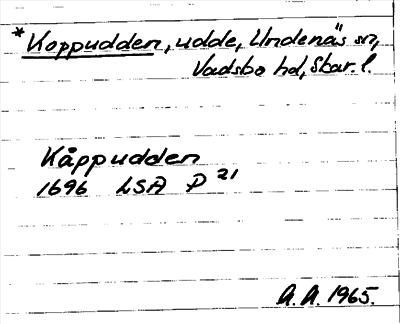 *Koppudden, udde, Undenäs sn,
Vadsbo hd, Skar. l.
Kåppudden
1696 LSA P 21
A. A. 1965.